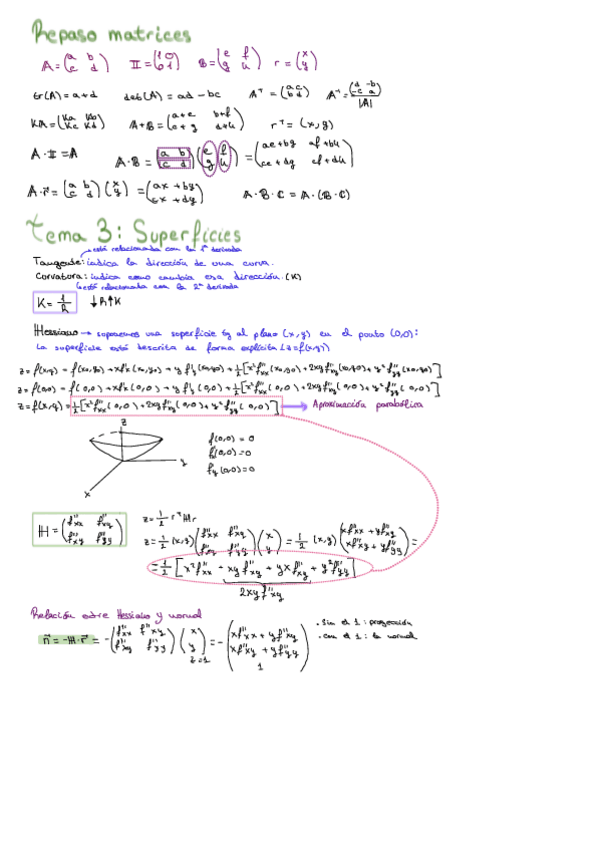 Repaso matrices
A = (a b / c d)   II = (1 0 / 0 1)   B = (e f / g h)   r = (x / y)
tr(A) = a+d   det(A) = ad - bc   Aᵀ = (a c / b d)   A⁻¹ = (d -b / -c a) / |A|
KA = (Ka Kb / Kc Kd)   A+B = (a+e b+f / c+g d+h)   rᵀ = (x, y)
A · II = A   A · B = (a b / c d) (e f / g h) = (ae+bg af+bh / ce+dg cf+dh)
A · r⃗ = (a b / c d) (x / y) = (ax + by / cx + dy)   A · B · C = A · (B · C)
Tema 3: Superficies
está relacionada con la 1ª derivada
Tangente: indica la dirección de una curva.
Curvatura: indica como cambia esa dirección. (K)
está relacionada con la 2ª derivada
K = 1/R   ↓R↑K
Hessiano → suponemos una superficie tg al plano (x, y) en el punto (0,0):
La superficie está descrita de forma explícita (z = f(x,y))
z = f(x,y) = f(x₀,y₀) + xf'x (x₀,y₀) + y f'y (x₀,y₀) + 1/2 [x² f''xx (x₀,y₀) + 2xy f''xy (x₀,y₀) + y² f''yy (x₀,y₀)]
z = f(0,0) = f(0,0) + xf'x (0,0) + y f'y (0,0) + 1/2 [x² f''xx (0,0) + 2xy f''xy (0,0) + y² f''yy (0,0)]
z = f(x,y) = 1/2 [x² f''xx (0,0) + 2xy f''xy (0,0) + y² f''yy (0,0)] → Aproximación parabólica
z
y
x
f(0,0) = 0
f'x(0,0) = 0
f'y(0,0) = 0
H = (f''xx f''xy / f''xy f''yy)
z = 1/2 rᵀ H r
z = 1/2 (x,y) (f''xx f''xy / f''xy f''yy) (x / y) = 1/2 (x,y) (xf''xx + yf''xy / xf''xy + yf''yy) =
= 1/2 [x² f''xx + xy f''xy + yx f''xy + y² f''yy]
2xy f''xy
Relación entre Hessiano y normal
n⃗ = -H · r⃗ = -(f''xx f''xy / f''xy f''yy) (x / y / z=1) = -(xf''xx + yf''xy / xf''xy + yf''yy / 1)
· Sin el 1: proyección
· con el 1: la normal